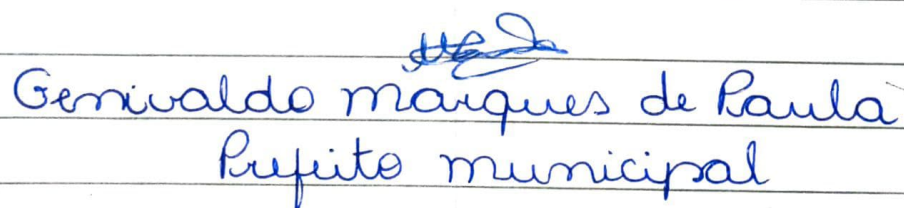 Genivaldo Marques de Paula
Prefeito municipal